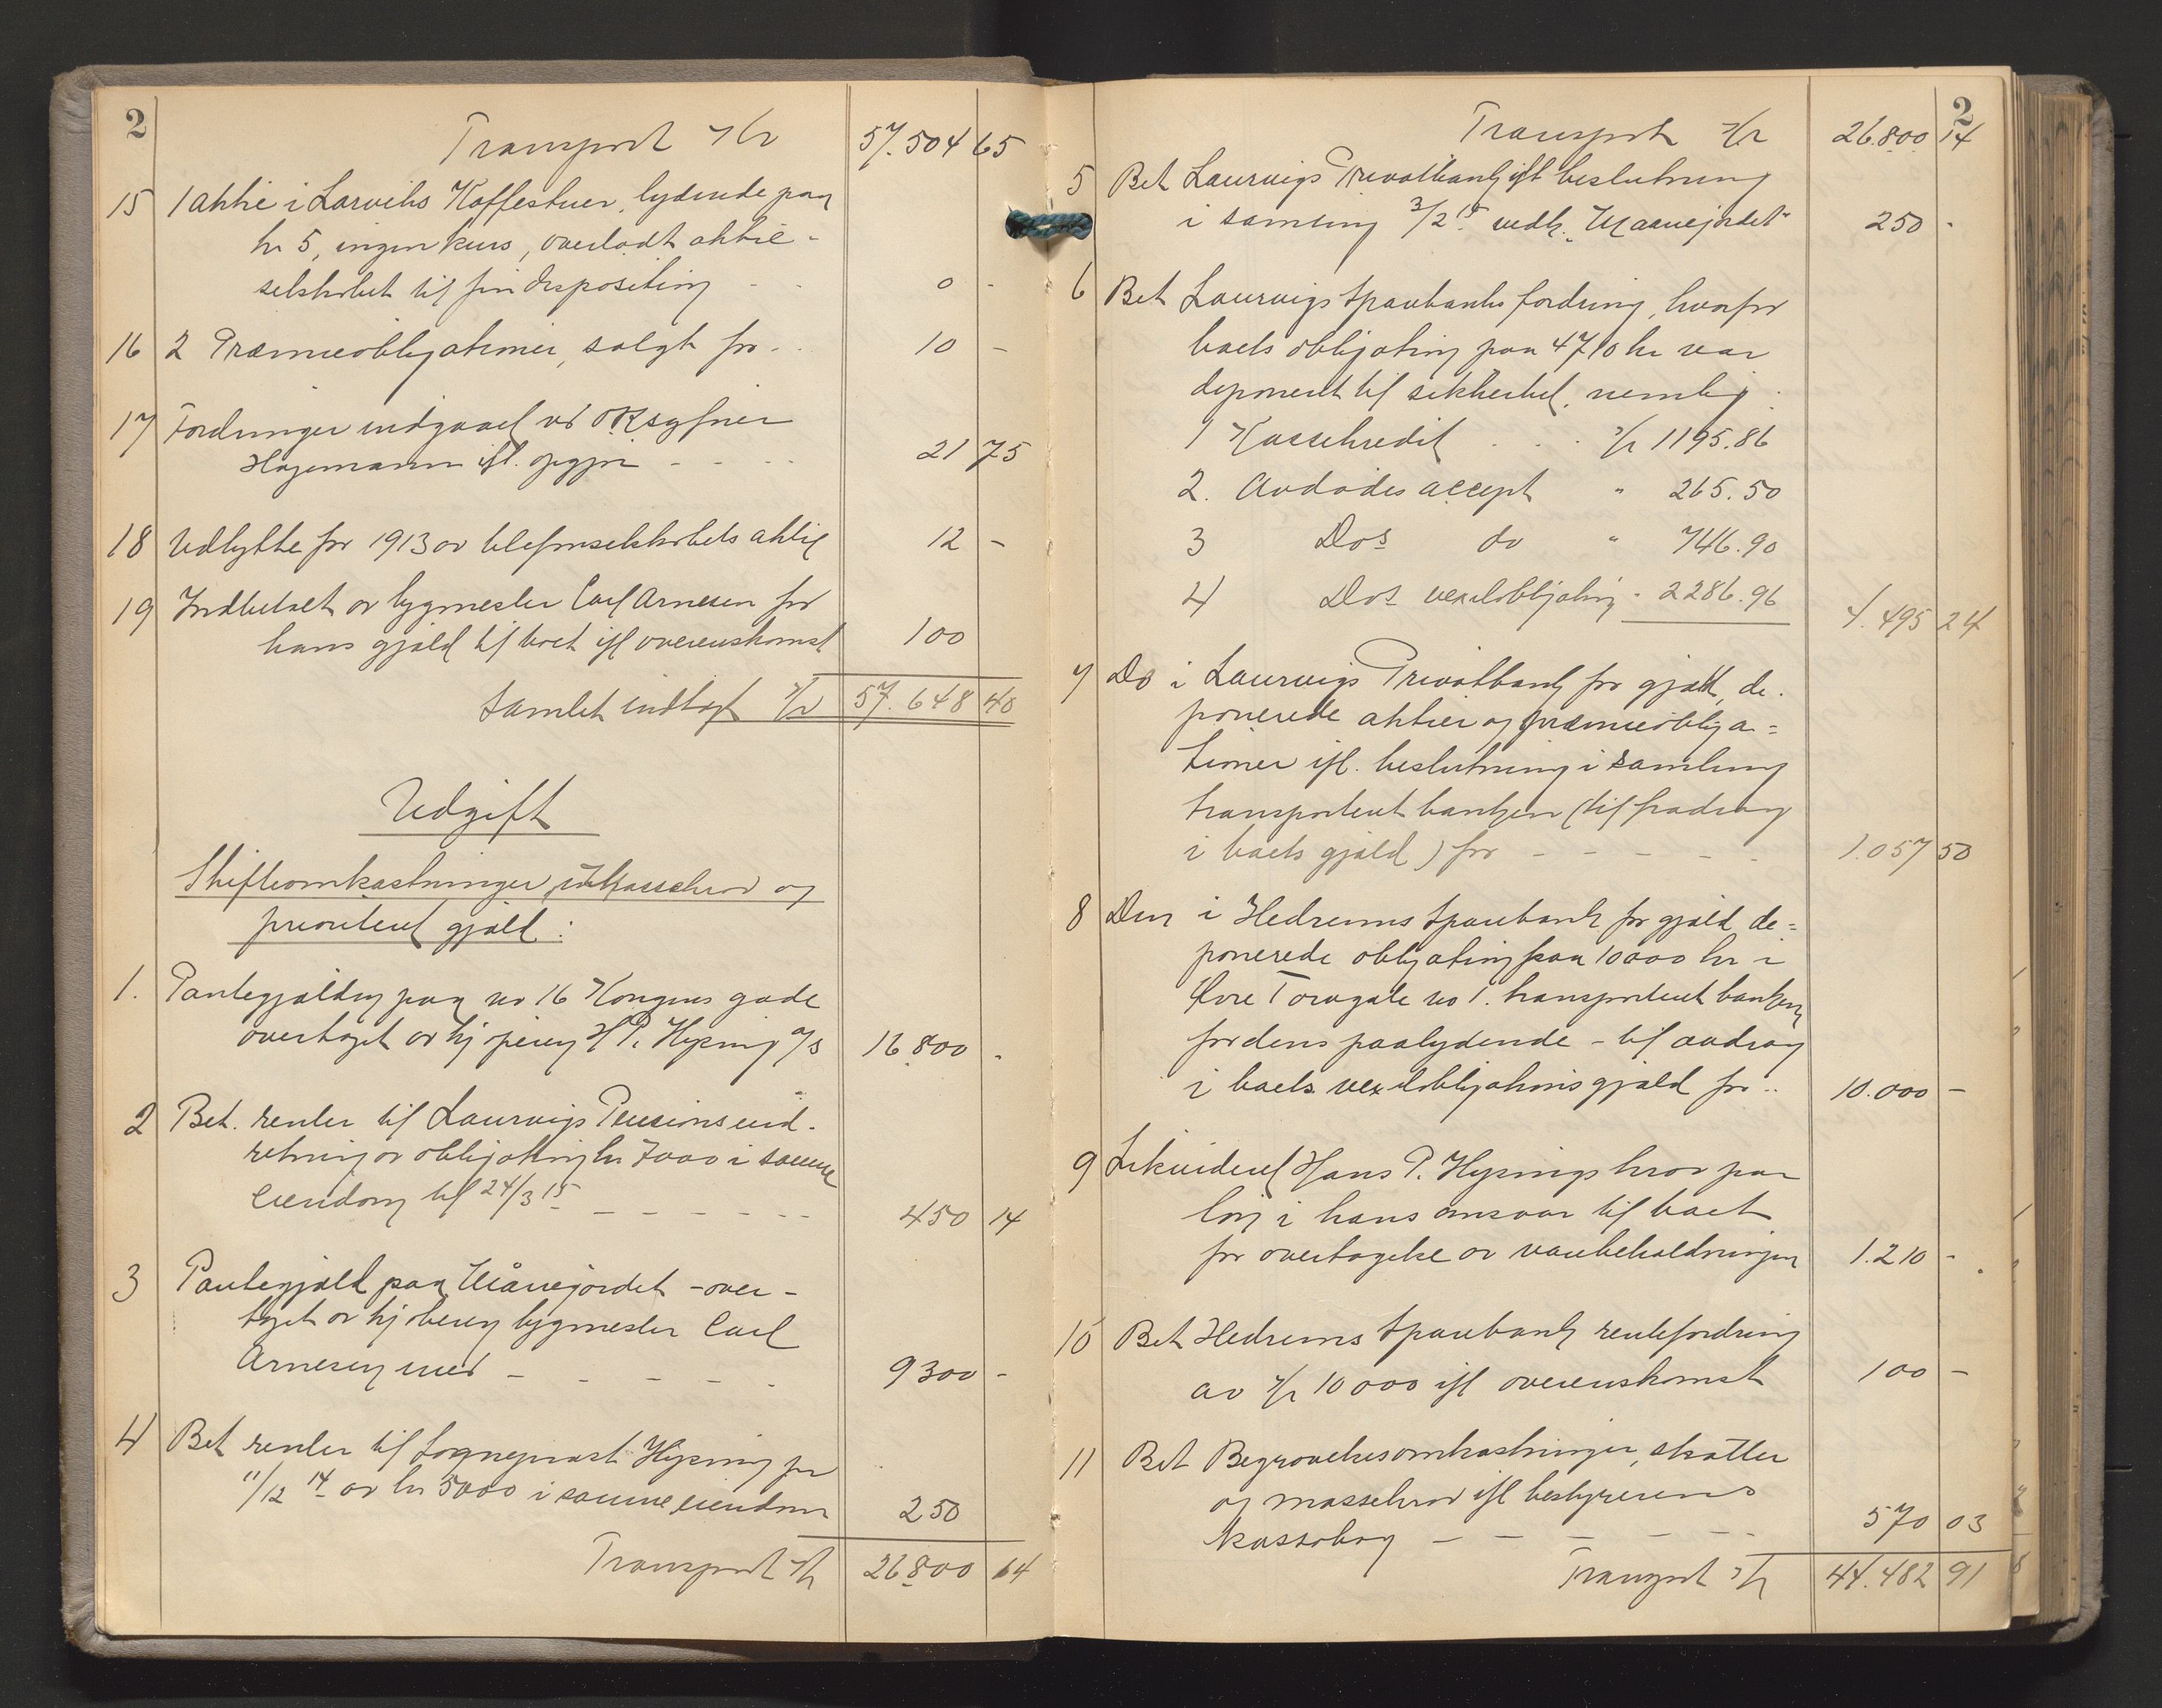 2
Transport Kr 57.504 65
15 1 aktie i Larviks Kaffestuer, lydende paa
kr 5, ingen kurs, overladt aktie-
selskabet til fri disposition - - 0 -
16 2 Præmieobligationer, solgt for - . 10 -
17 Fordringer indgaaet ved ORsagfører
Hagemann ifl. opgjør - - - - 21 75
18 Udbytte for 1913 av telefonselskabets aktie 12 -
19 Indbetalt av bygmester Carl Arnesen for
hans gjæld til boet ifl overenskomst 100
Samlet indtægt Kr 57.648 40
Udgift
Skifteomkostninger, massekrav og
prioritert gjæld:
1. Pantegjælden paa no 16 Kongens gade
overtaget av kjøperen H P. Hysing a/s 16.800 -
2 Bet. renter til Laurvigs Pensionsind-
retning av obligation kr 7000 i samme
Eiendom til 24/3 15 - - - - - - 450 14
3 Pantegjæld paa Månejordet - over-
taget av kjøberen bygmester Carl
Arnesen med - - - - - 9300 -
4 Bet renter til Sogneprest Hysing pr
11/12 14 av kr 5000 i samme eiendom 250
Transport Kr 26.800 14
2
Transport Kr 26.800 14
5 Bet Laurvigs Privatbank ifl beslutning
i samling 3/2 15 vedk. "Maanejordet" 250 -
6 Bet Laurvigs Sparebanks fordring, hvorfor
boets obligation paa 4710 kr var
deponert til sikkerhet, nemlig:
1 Kassekredit . . . Kr 1195.86
2. Avdødes accept " 265.50
3 Dos do " 746.90
4 Dos vexelobligation " 2286.96 4.495 24
7 De i Laurvigs Privatbank for gjæld de-
ponerede aktier og præmieobliga=
tioner ifl. beslutning i samling
transportert banken (til fradrag
i boets gjæld) for - - - - - 1.057 50
8 Den i Hedrums Sparebank for gjæld de=
ponerede obligation paa 10000 kr i
Øvre Torvgate no 1. transportert banken
for dens paalydende - til avdrag
i boets vexelobligationsgjæld for .. 10.000 -
9 Likvidert Hans P. Hysings krav paa
løn i hans ansvar til boet
for overtagelse av varebeholdningen 1.210 -
10 Bet Hedrums Sparebank rentefordring
av Kr 10 000 ifl overenskomst 100 -
11 Bet Begravelsesomkostninger, skatter
og massekrav ifl bestyrerens
kassabog - - - - - 570 03
Transport Kr 44.482 91